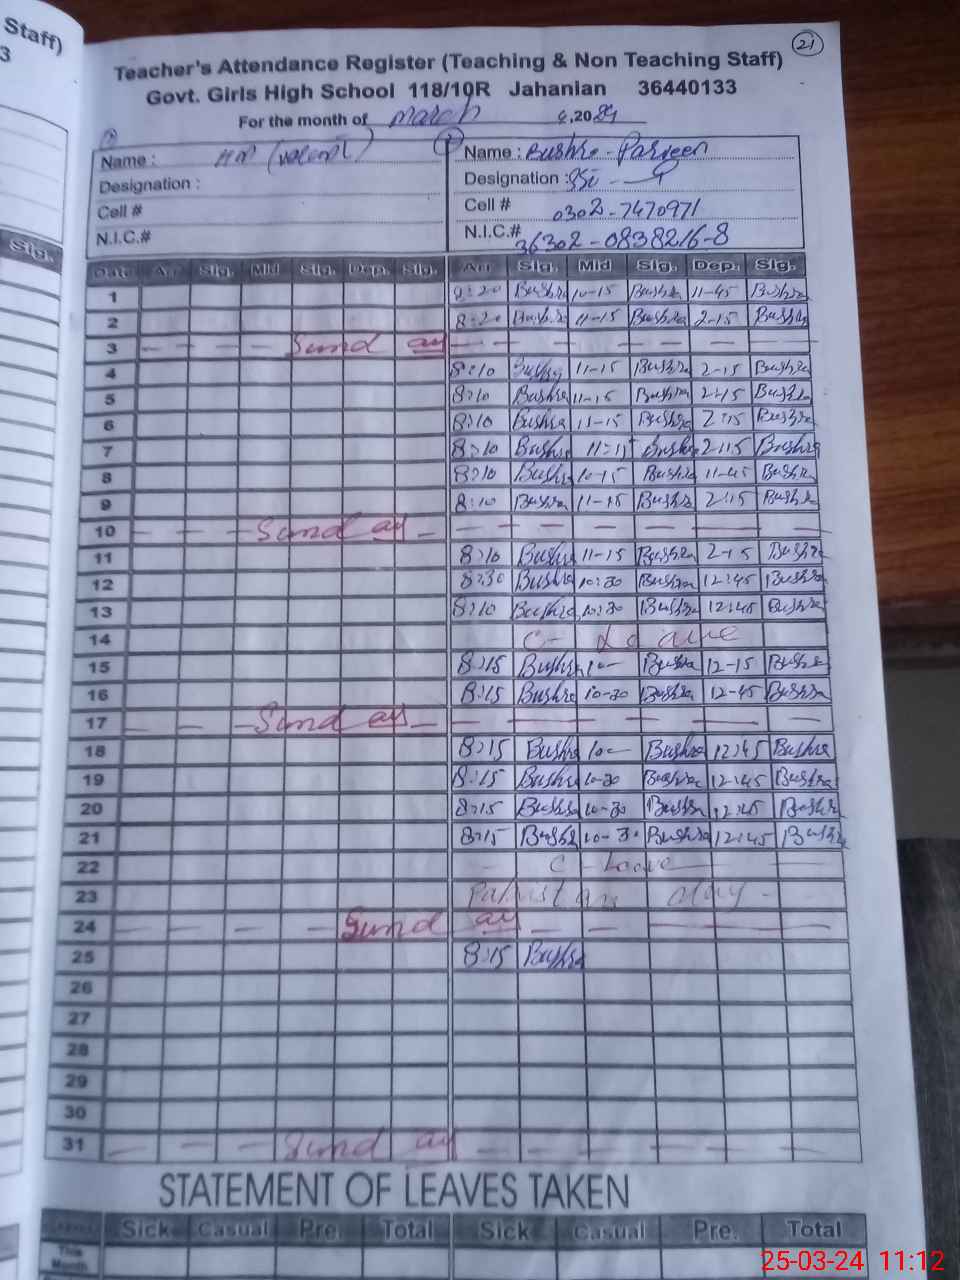 Staff)
3
Sig.
21
Teacher's Attendance Register (Teaching & Non Teaching Staff)
Govt. Girls High School 118/10R Jahanian 36440133
For the month of March 2024
Name : HM Name : Bushra Parveen
Designation : Designation :
Cell # Cell # 0302-7470971
N.I.C.# N.I.C.# 36302-0838216-8
Date Arr Sig. Mid Sig. Dep. Sig. Arr Sig. Mid Sig. Dep. Sig.
1 8:20 Bushra 10-15 Bushra 11-45 Bushra
2 8-20 Bushra 11-15 Bushra 2-15 Bushra
3 — — — Sunday — — — — — —
4 8:10 Bushra 11-15 Bushra 2-15 Bushra
5 8:10 Bushra 11-15 Bushra 2-15 Bushra
6 8:10 Bushra 11-15 Bushra 2:15 Bushra
7 8:10 Bushra 11:15 Bushra 2-15 Bushra
8 8:10 Bushra 10-15 Bushra 11-45 Bushra
9 8:10 Bushra 11-15 Bushra 2:15 Bushra
10 — — — Sunday — — — — — — —
11 8:10 Bushra 11-15 Bushra 2-15 Bushra
12 8:30 Bushra 10:30 Bushra 12:45 Bushra
13 8:10 Bushra 10:30 Bushra 12:45 Bushra
14 C- Leave
15 8:15 Bushra 10- Bushra 12-15 Bushra
16 8:15 Bushra 10-30 Bushra 12-45 Bushra
17 — — — Sunday — — — — — — —
18 8:15 Bushra 10- Bushra 12:45 Bushra
19 8:15 Bushra 10-30 Bushra 12:45 Bushra
20 8:15 Bushra 10-30 Bushra 12:45 Bushra
21 8:15 Bushra 10-30 Bushra 12:45 Bushra
22 — C Leave —
23 Pakistan day -
24 — — — — Sunday — — — — —
25 8:15 Bushra
26
27
28
29
30
31 — — — Sunday — — — — — —
STATEMENT OF LEAVES TAKEN
Sick Casual Pre. Total Sick Casual Pre. Total
This Month
25-03-24 11:12